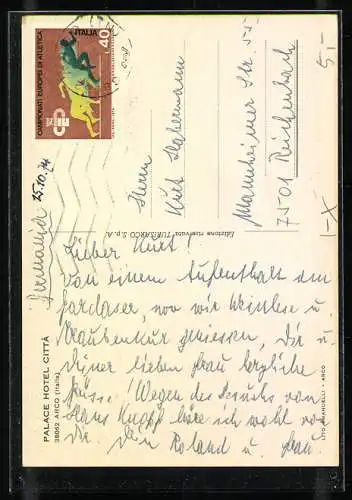 CAMPIONATI EUROPEI DI ATLETICA
ITALIA
40
5,-
25.10.74
Germania
Herrn
Kurt Habermann
Mannheimer Str. 55
7501 Reichenbach
I-X
Edizione riservata TURISARCO S.p.A.
PALACE HOTEL CITTÀ
38062 ARCO (Italia)
LITO - ARCO
Lieber Kurt!
Von einem Aufenthalt am
Gardasee, wo wir Weinlese u
Traubenkur geniessen, Dir u
Deiner lieben Frau herzliche
Grüsse! Wegen des Besuchs von
Hans Knopf höre ich wohl von
Dir. Dein Roland u. Frau.